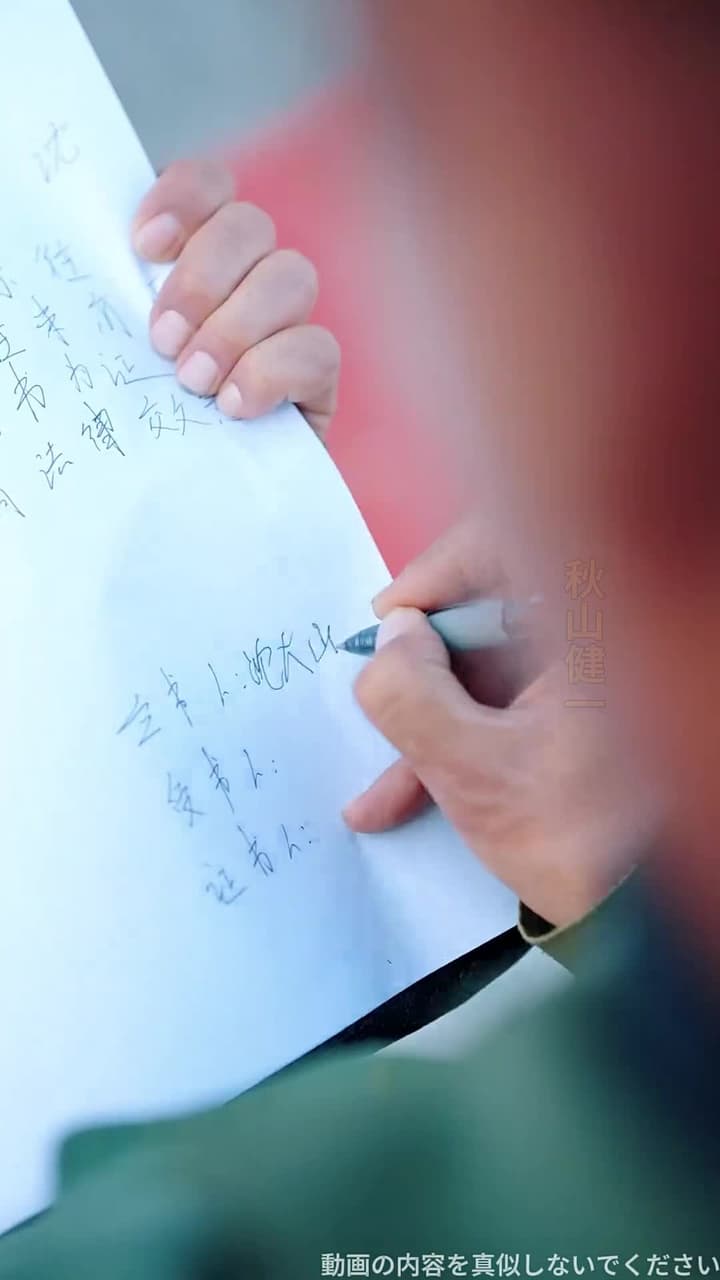 沈
往
未前
书为证
法律效
立书人:沈大山
受书人:
证书人:
秋山健一
動画の内容を真似しないでください